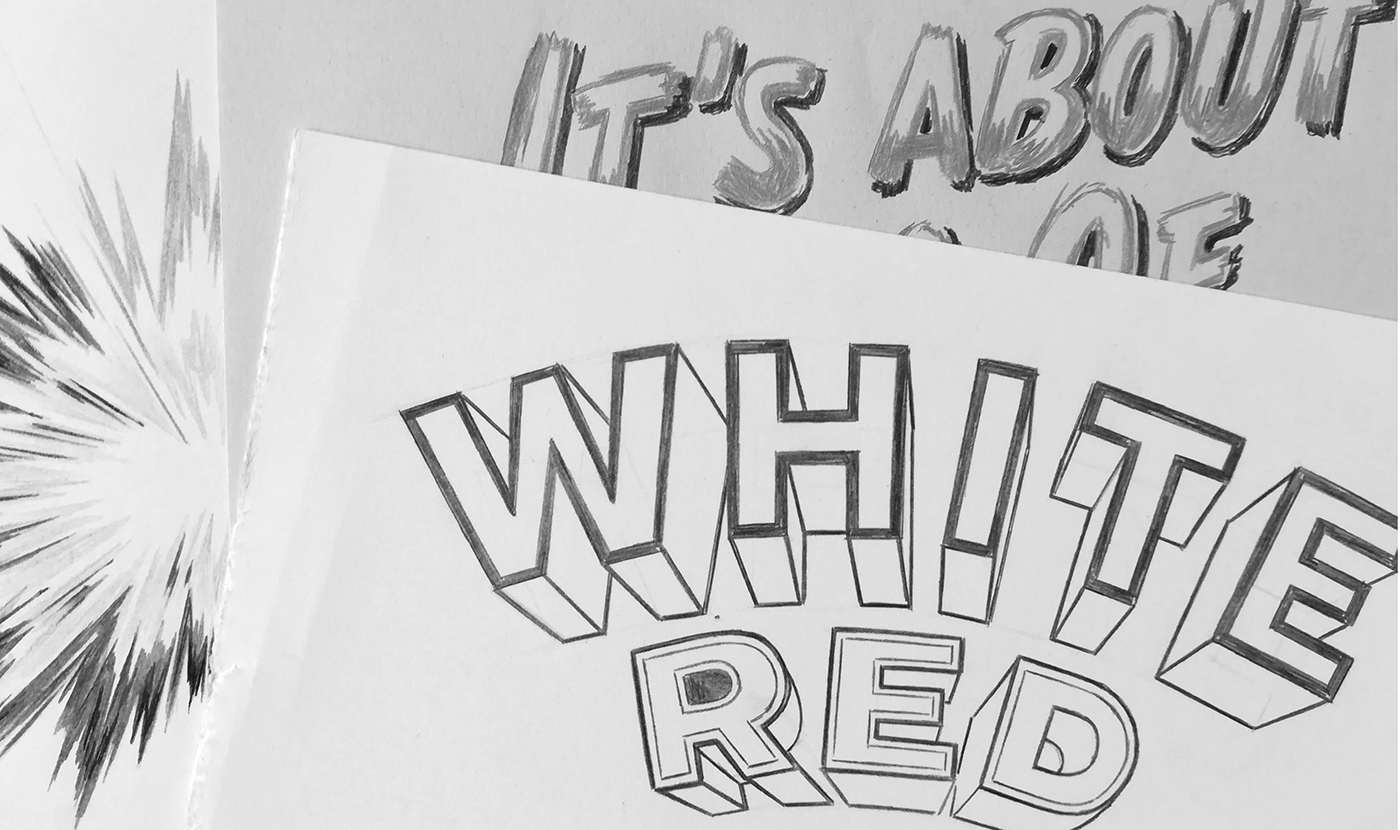 IT'S ABOUT
WHITE
RED